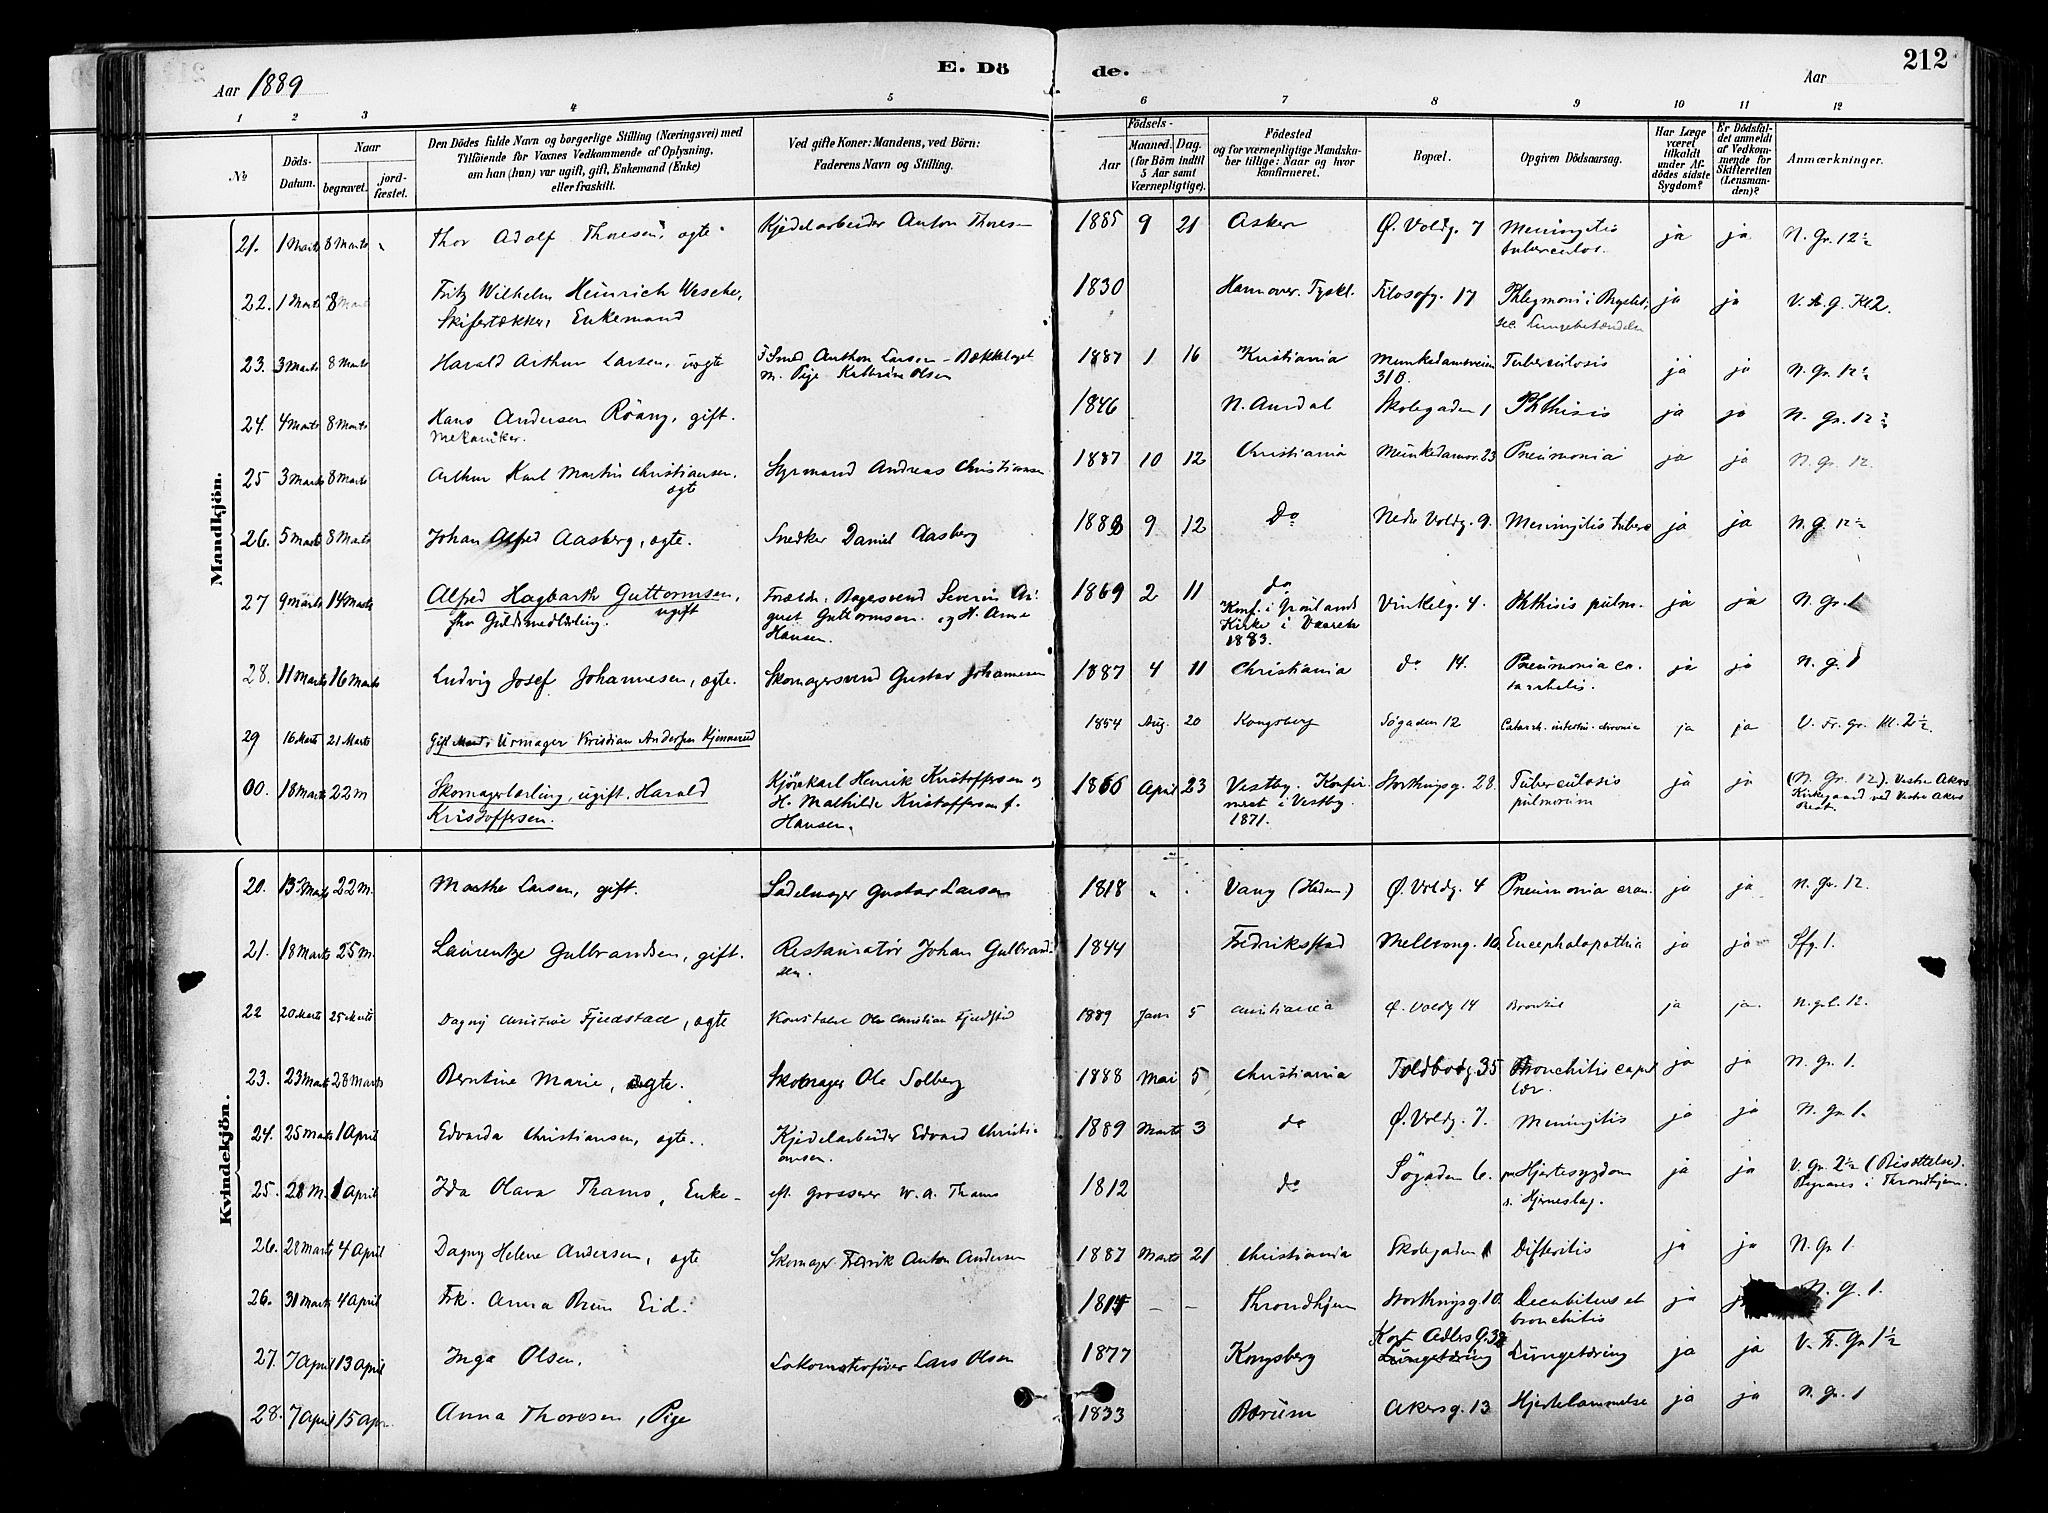 E. Dö de.
212
Aar 1889
Aar
1 2 3 4 5 6 7 8 9 10 11 12
№
Döds-Datum.
Naar
begravet.
jordfæstet.
Den Dödes fulde Navn og borgerlige Stilling (Næringsvei) med
Tilföiende for Voxnes Vedkommende af Oplysning,
om han (hun) var ugift, gift, Enkemand (Enke)
eller fraskilt.
Ved gifte Koner: Mandens, ved Börn:
Faderens Navn og Stilling.
Födsels-
Aar
Maaned. Dag.
(for Börn indtil
5 Aar samt
Værnepligtige).
Födested
og for værnepligtige Mandskaber tillige: Naar og hvor
konfirmeret.
Bopæl.
Opgiven Dödsaarsag.
Har Læge været tilkaldt under Afdödes sidste Sygdom?
Er Dödsfaldet anmeldt af Vedkommende for Skifteretten (Lensmanden)?
Anmærkninger.
Mandkjön.
21. 1 Marts 8 Marts Thor Adolf Thoresen, ægte. Kjedelarbeider Anton Thoresen 1885 9 21 Asker Ø. Voldg. 7 Meningitis tuberculos. ja ja N. Gr. 12½
22. 1 Marts 8 Marts Fritz Wilhelm Heinrich Wesche, Skifertækker, Enkemand 1830 Hannover. Tyskl. Filosofg. 17 Phlegmoni i Brystet, sec. Lungebetændelse ja ja V. A. G. Kl 2.
23. 3 Marts 8 Marts Harald Arthur Larsen, uægte F. Smed Anthon Larsen - Bækkelaget M. Pige Kathrine Olsen 1887 1 16 Kristiania Munkedamsveien 31 B. Tuberculosis ja ja N. Gr. 12½
24. 4 Marts 8 Marts Hans Andersen Röang, gift. Mekaniker. 1846 N. Aurdal Skolegaden 1 Phthisis ja ja N. Gr. 12½
25 3 Marts 8 Marts Arthur Karl Martin Christiansen, ægte Styrmand Andreas Christiansen 1887 10 12 Christiania Munkedamsv. 23 Pneumonia ja ja N. Gr. 12.
26. 5 Marts 8 Marts Johan Alfred Aasberg, ægte. Snedker Daniel Aasberg 1888 9 12 Do Nedre Voldg. 9. Meningitis tuberc ja ja N. G. 12½
27 9 Marts 14 Marts Alfred Hagbarth Guttormsen, ugift Guldsmedlærling. Foræld. Bagersvend Severin August Guttormsen og H. Anne Hansen. 1869 2 11 do Konf. i Grönlands Kirke i Vaaren 1883. Vinkelg. 4. Phthisis pulm. ja ja N. Gr. 1
28. 11 Marts 16 Marts Ludvig Josef Johannesen, ægte. Skomagersvend Gustav Johannesen 1887 4 11 Christiania do 14. Pneumonia catarrhalis. ja ja N. G. 1
29 16 Marts 21 Marts Gift Mand: Urmager Kristian Andersen Kjennerud 1854 Aug. 20 Kongsberg Søgaden 12 Catarrh. intestin. chronic ja ja V. Fr. Gr. Kl. 2½
00. 18 Marts 22 M Skomagerlærling, ugift. Harald Kristoffersen. Kjörekarl Henrik Kristoffersen og H. Mathilde Kristoffersen f. Hansen. 1866 April 23 Vestby. Konfirmeret i Vestby 1871. Storthingsg. 28. Tuberculosis pulmorum ja ja (N. Gr. 12). Vestre Akers Kirkegaard ved Vestre Akers Præst.
Kvindekjön.
20. 13 Marts 22 M. Marthe Larsen, gift. Sadelmager Gustav Larsen 1818 " . Vang (Hedem) Ø. Voldg. 4 Pneumonia crou. ja ja N. Gr. 12.
21. 18 Marts 25 M. Laurentze Gulbrandsen, gift. Restauratør Johan Gulbrandsen. 1844 Fredriksstad Mellemg. 10 Encephalopathia ja ja Sfg. 1.
22 20 Marts 25 Marts Dagny Christine Fjeldstad, ægte Konstabel Ole Christian Fjeldstad 1889 Jan 5 Christiania Ø. Voldg 14 Bronkit ja ja N. gr. 12.
23. 23 Marts 28 Marts Berntine Marie, ægte. Skomager Ole Solberg 1888 Mai 5 Christiania Toldbodg. 35 Bronchitis capillær ja ja N. Gr. 1.
24. 25 Marts 1 April Edvarda Christiansen, ægte. Kjedelarbeider Edvard Christiansen. 1889 Marts 3 do Ø. Voldg. 7. Meningitis ja ja N. Gr. 1.
25. 28 M. 1 April Ida Olava Thams, Enke- eft. grosserer W. A. Thams 1812 do Søgaden 6. pr Hjertesygdom s. Hjerneslag. ja ja V. Gr. 2½ (Bisættelse). Begraves i Throndhjem.
26. 28 Marts 4 April Dagny Helene Andersen, ægte Skomager Fredrik Anton Andersen 1887 Marts 21 Christiania Skolegaden 1 Difteritis ja ja N. Gr 1.
26. 31 Marts 4 April Frk. Anna Brun Eid. 1815 - - Throndhjem Storthingsg. 10. Decubitus et bronchitis ja ja N. G. 1.
27. 7 April 13 April Inga Olsen, Lokomotivfører Lars Olsen 1877 Kongsberg Kort Adlers G. 32 Lungetæring Lungetæring ja ja V. Fr. Gr 1½
28. 7 April 15 Apr. Anna Thoresen, Pige 1833 Bærum Akersg. 13 Hjertelammelse ja ja N. Gr. 1